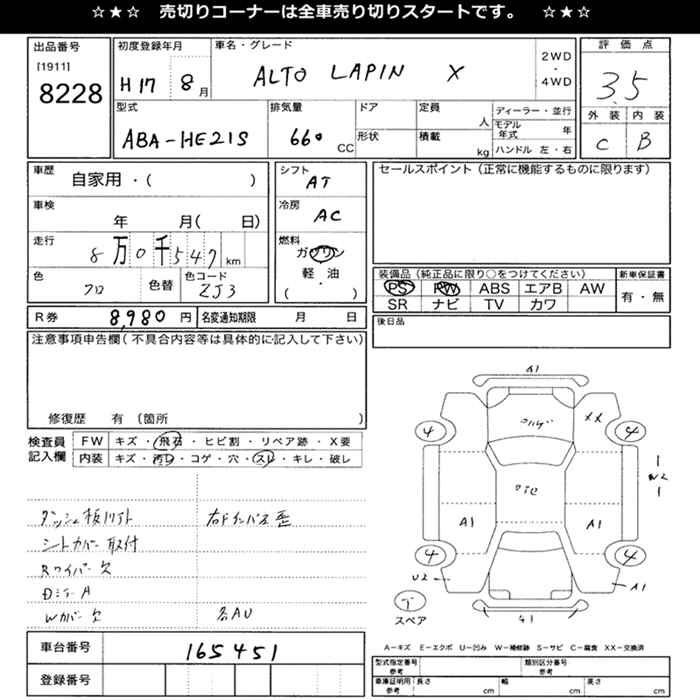 ☆★☆ 売切りコーナーは全車売り切りスタートです。 ☆★☆
出品番号
[1911]
8228
初度登録年月
H17 8月
車名・グレード
ALTO LAPIN X
2WD
・
4WD
評価点
3.5
外装 内装
C B
型式
ABA-HE21S
排気量
660 CC
ドア
形状
定員 人
積載 kg
ディーラー・並行
モデル年式 年
ハンドル 左・右
車歴
自家用・( )
車検
年 月( 日)
走行
8万0千547km
色
クロ
色替
色コード
ZJ3
シフト
AT
冷房
AC
燃料
ガソリン
軽・油
( )
セールスポイント(正常に機能するものに限ります)
装備品(純正品に限り○をつけてください)
新車保証書
PS PW ABS エアB AW
有・無
SR ナビ TV カワ
R券 8,980 円
名変通知期限 月 日
後日品
注意事項申告欄(不具合内容等は具体的に記入して下さい)
修復歴 有(箇所
検査員
記入欄
FW キズ・飛石・ヒビ割・リペア跡・X要
内装 キズ・汚レ・コゲ・穴・スレ・キレ・破レ
シートカバー取付
Rワイパー欠
Wカバー欠
各AU
A1
XX
4
4
W2
A1
A1
4
4
U2
A1
スペア
A−キズ E−エクボ U−凹み W−補修跡 S−サビ C−腐食 XX−交換済
車台番号
165451
登録番号
型式指定番号
参考
類別区分番号
参考
車庫証明用
参考
長さ cm
幅 cm
高さ cm